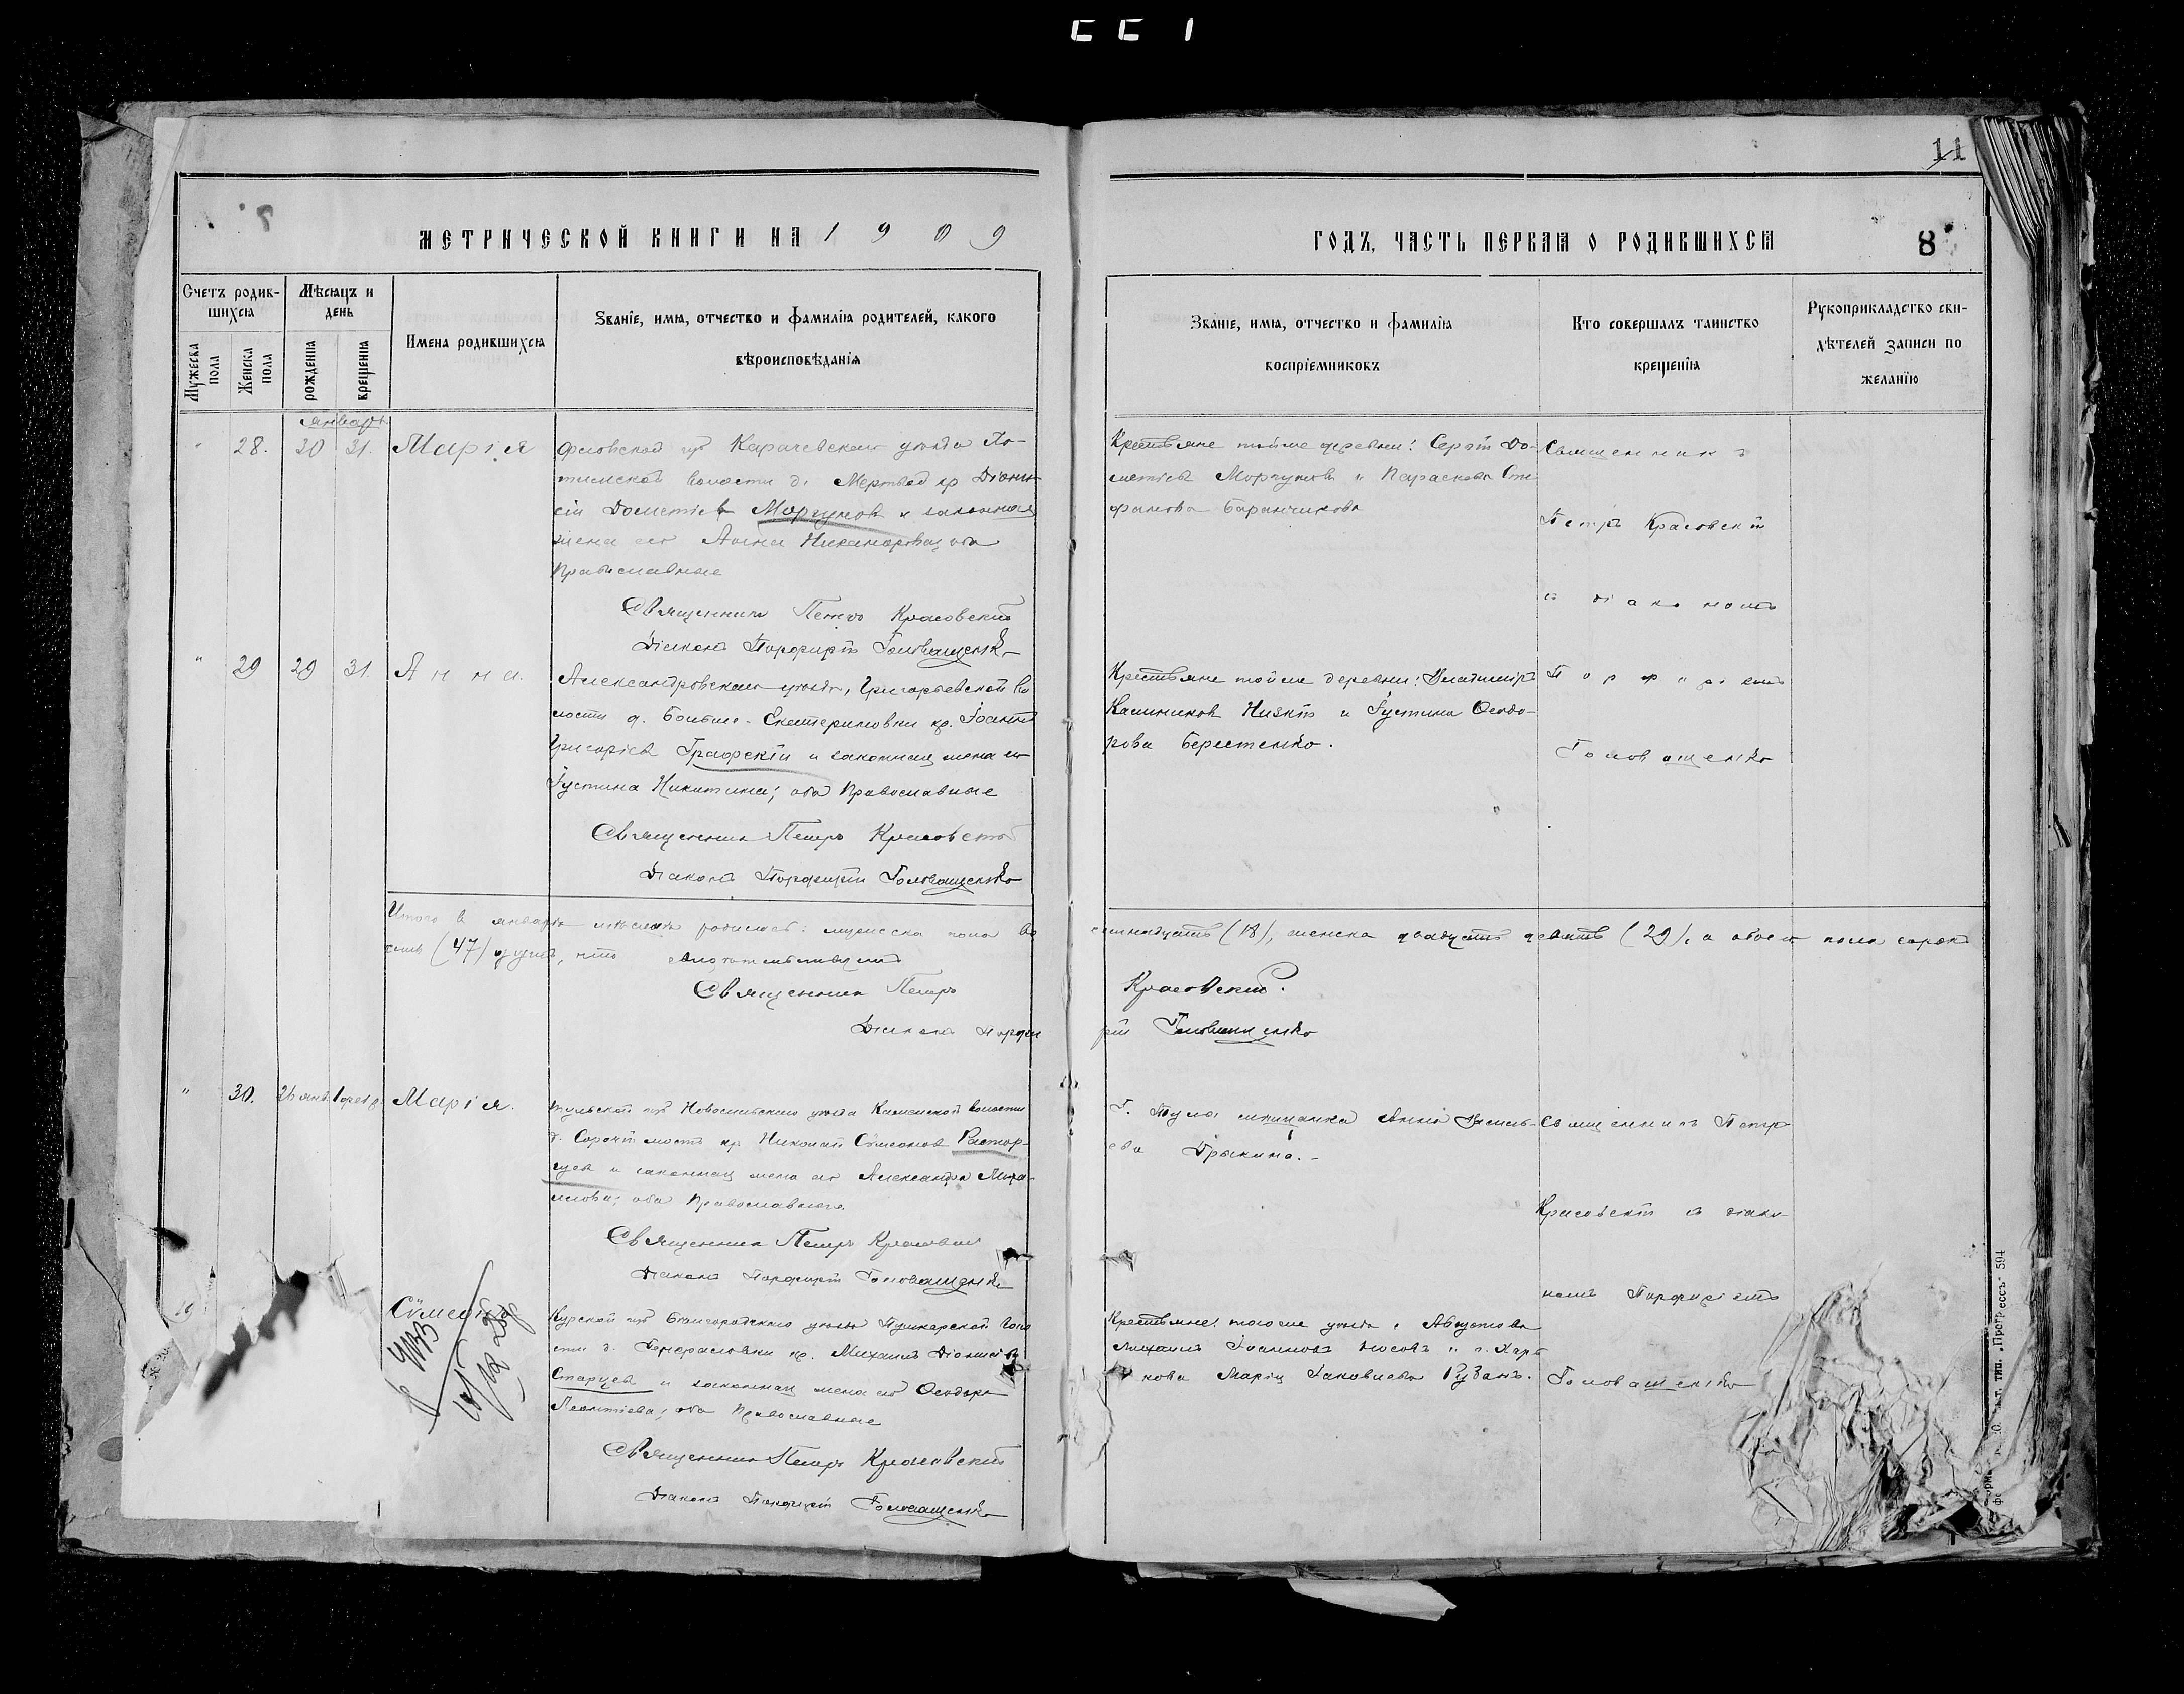 11
МЕТРИЧЕСКОЙ КНИГИ НА 1909
ГОДЪ, ЧАСТЬ ПЕРВАЯ О РОДИВШИХСЯ
8
Счетъ родив-
шихся
Мужеска пола
Женска пола
Мѣсяцъ и
день
рожденія
крещенія
Имена родившихся
Званіе, имя, отчество и фамилія родителей, какого
вѣроисповѣданія
Званіе, имя, отчество и фамилія
воспріемниковъ
Кто совершалъ таинство
крещенія
Рукоприкладство сви-
дѣтелей записи по
желанію
январь
28. 30 31. Марія
Орловской губ Карачевскаго уѣзда
волости д. кр Діони-
сій Дометіевъ Моргуновъ и законная
жена его Анна Никанорова, оба
Православные
Священникъ Петръ Красовскій
Діаконъ Порфирій Головащенко
Крестьяне тойже деревни: Сергѣй До-
метіевъ Моргуновъ и Параскева Сте
фанова Баранчикова
Священникъ
Петръ Красовскій
съ діакономъ
29 29 31. Анна.
Александровскаго уѣзда, Григорьевской во
лости д. Больше-Екатериновки кр. Іоаннъ
Григоріевъ Графскій и законная жена его
Іустина Никитина; оба Православные
Священникъ Петръ Красовскій
Діаконъ Порфирій Головащенко
Крестьяне тойже деревни: Владиміръ
Калиниковъ Низкій и Іустина Ѳеодо-
рова Берестенко.
Порфиріемъ
Головащенко
Итого въ январѣ мѣсяцѣ родилось: мужеска пола во
семнадцать (18), женска двадцать девять (29), а обоего пола сорокъ
семь (47) душъ, что
Священникъ Петръ
Красовскій.
Діаконъ Порфи
рій Головащенко
30. 26 янв. 1 февр. Марія.
Тульской губ Новосильскаго уѣзда Каменской волости
д. кр Николай Сѵмеоновъ Растор-
гуевъ и законная жена его Александра
оба Православные.
Священникъ Петръ Красовскій
Діаконъ Порфирій Головащенко
Г. Тулы мѣщанка Анна Василь-
ева Дрыкина.
Священникъ Петръ
Красовскій съ діако-
номъ Порфиріемъ
Сѵмеонъ
Курской губ Бѣлгородскаго уѣзда Пушкарской воло
сти д. кр. Михаилъ Діонисіевъ
Старцевъ и законная жена его Ѳеодора
Леонтіева; оба Православные
Священникъ Петръ Красовскій
Діаконъ Порфирій Головащенко
Крестьяне: того же уѣзда с. Августова
Михаилъ Іоанновъ Носовъ и г. Харь
кова Марія Іаковлева Рубанъ.
Головащенко